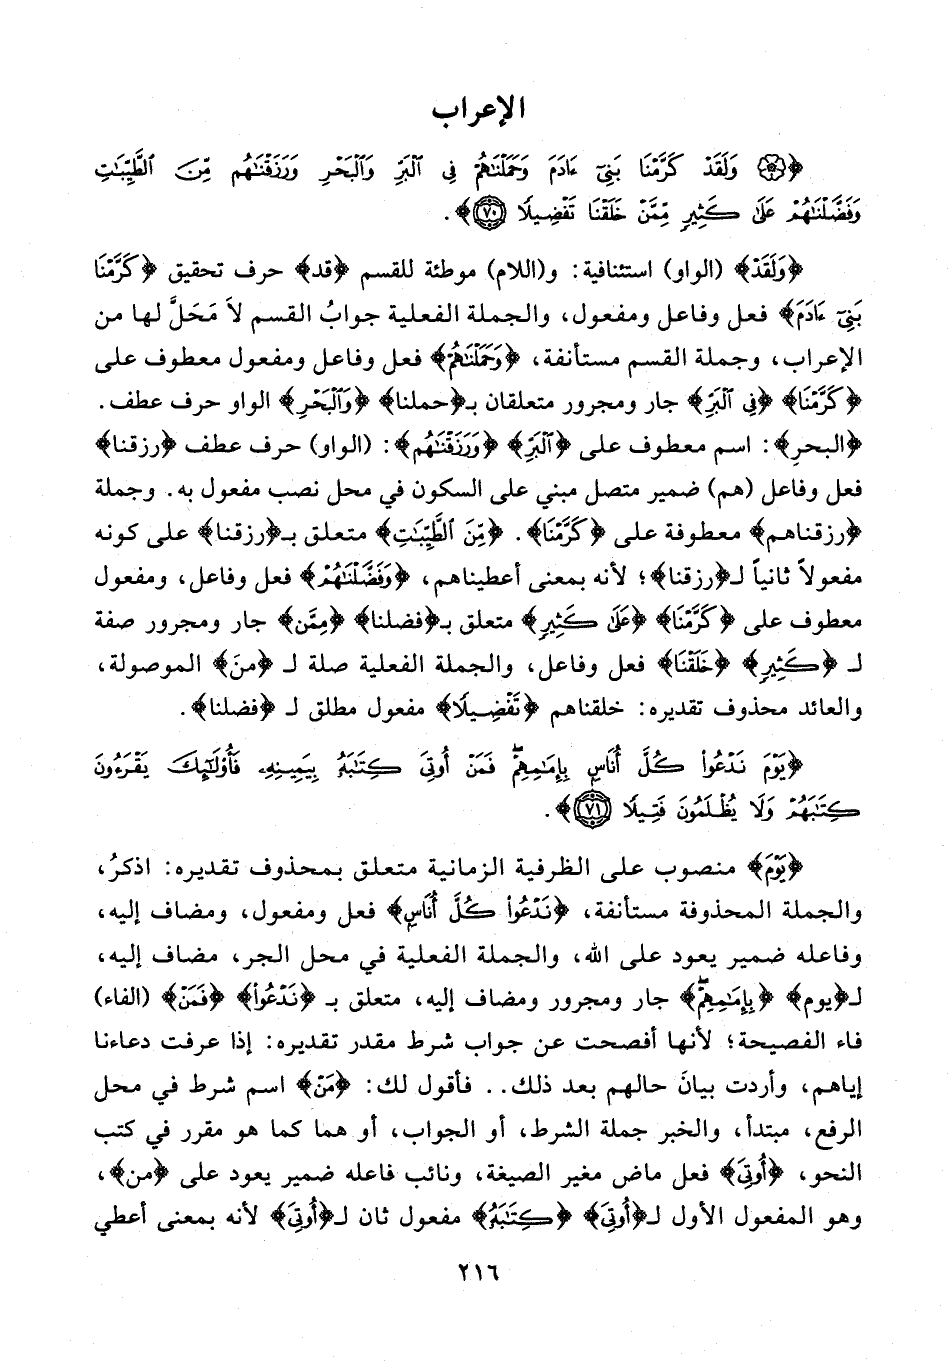 الإعراب
﴿۞ وَلَقَدْ كَرَّمْنَا بَنِيٓ ءَادَمَ وَحَمَلْنَٰهُمْ فِي ٱلْبَرِّ وَٱلْبَحْرِ وَرَزَقْنَٰهُم مِّنَ ٱلطَّيِّبَٰتِ
وَفَضَّلْنَٰهُمْ عَلَىٰ كَثِيرٍ مِّمَّنْ خَلَقْنَا تَفْضِيلًا ٧٠﴾.
﴿وَلَقَدْ﴾ (الواو) استئنافية: و(اللام) موطئة للقسم ﴿قد﴾ حرف تحقيق ﴿كَرَّمْنَا
بَنِيٓ ءَادَمَ﴾ فعل وفاعل ومفعول، والجملة الفعلية جوابُ القسم لاَ مَحَلَّ لها من
الإعراب، وجملة القسم مستأنفة، ﴿وَحَمَلْنَٰهُمْ﴾ فعل وفاعل ومفعول معطوف على
﴿كَرَّمْنَا﴾ ﴿فِي ٱلْبَرِّ﴾ جار ومجرور متعلقان بـ﴿حملنا﴾ ﴿وَٱلْبَحْرِ﴾ الواو حرف عطف.
﴿البحرِ﴾: اسم معطوف على ﴿ٱلْبَرِّ﴾ ﴿وَرَزَقْنَٰهُم﴾: (الواو) حرف عطف ﴿رزقنا﴾
فعل وفاعل (هم) ضمير متصل مبني على السكون في محل نصب مفعول به. وجملة
﴿رزقناهم﴾ معطوفة على ﴿كَرَّمْنَا﴾. ﴿مِّنَ ٱلطَّيِّبَٰتِ﴾ متعلق بـ﴿رزقنا﴾ على كونه
مفعولاً ثانياً لـ﴿رزقنا﴾؛ لأنه بمعنى أعطيناهم، ﴿وَفَضَّلْنَٰهُمْ﴾ فعل وفاعل، ومفعول
معطوف على ﴿كَرَّمْنَا﴾ ﴿عَلَىٰ كَثِيرٍ﴾ متعلق بـ﴿فضلنا﴾ ﴿مِمَّن﴾ جار ومجرور صفة
لـ ﴿كَثِيرٍ﴾ ﴿خَلَقْنَا﴾ فعل وفاعل، والجملة الفعلية صلة لـ ﴿من﴾ الموصولة،
والعائد محذوف تقديره: خلقناهم ﴿تَفْضِيلًا﴾ مفعول مطلق لـ ﴿فضلنا﴾.
﴿يَوْمَ نَدْعُوا۟ كُلَّ أُنَاسٍ بِإِمَٰمِهِمْ ۖ فَمَنْ أُوتِيَ كِتَٰبَهُۥ بِيَمِينِهِۦ فَأُو۟لَٰٓئِكَ يَقْرَءُونَ
كِتَٰبَهُمْ وَلَا يُظْلَمُونَ فَتِيلًا ٧١﴾.
﴿يَوْمَ﴾ منصوب على الظرفية الزمانية متعلق بمحذوف تقديره: اذكرُ،
والجملة المحذوفة مستأنفة، ﴿نَدْعُوا۟ كُلَّ أُنَاسٍ﴾ فعل ومفعول، ومضاف إليه،
وفاعله ضمير يعود على الله، والجملة الفعلية في محل الجر، مضاف إليه،
لـ﴿يوم﴾ ﴿بِإِمَٰمِهِمْ ۖ﴾ جار ومجرور ومضاف إليه، متعلق بـ ﴿نَدْعُوا۟﴾ ﴿فَمَنْ﴾ (الفاء)
فاء الفصيحة؛ لأنها أفصحت عن جواب شرط مقدر تقديره: إذا عرفت دعاءنا
إياهم، وأردت بيانَ حالهم بعد ذلك.. فأقول لك: ﴿مَنْ﴾ اسم شرط في محل
الرفع، مبتدأ، والخبر جملة الشرط، أو الجواب، أو هما كما هو مقرر في كتب
النحو، ﴿أُوتِيَ﴾ فعل ماض مغير الصيغة، ونائب فاعله ضمير يعود على ﴿من﴾،
وهو المفعول الأول لـ﴿أُوتِيَ﴾ ﴿كِتَٰبَهُۥ﴾ مفعول ثان لـ﴿أُوتِيَ﴾ لأنه بمعنى أعطي
٢١٦